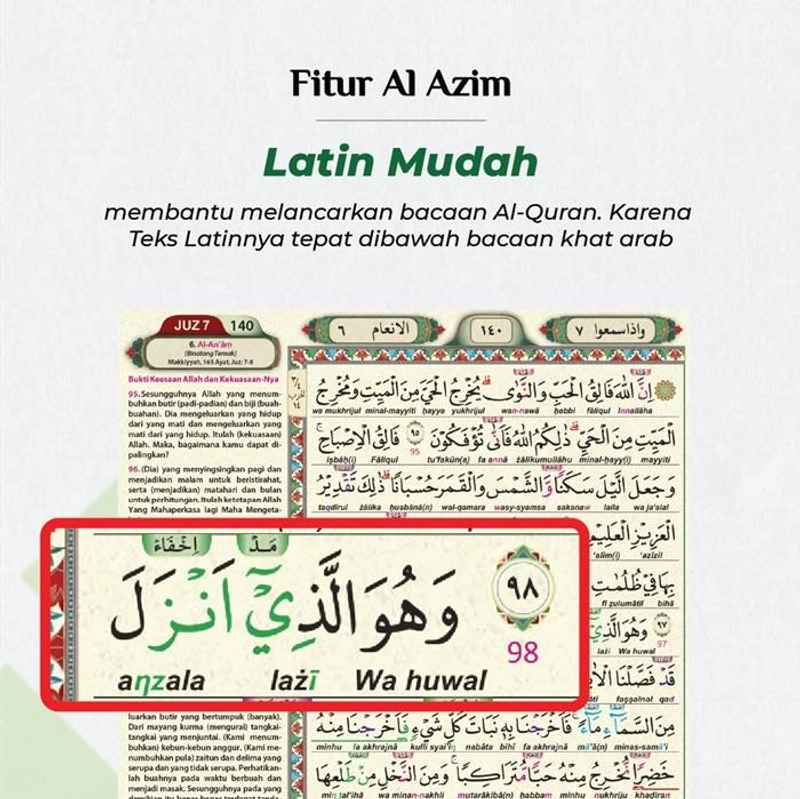 Fitur Al Azim
Latin Mudah
membantu melancarkan bacaan Al-Quran. Karena
Teks Latinnya tepat dibawah bacaan khat arab
JUZ 7 140
6. Al-An'âm
(Binatang Ternak)
Makkiyyah, 165 Ayat, Juz: 7-8
٦ الانعام
١٤٠
واذاسمعوا ٧
Bukti Keesaan Allah dan Kekuasaan-Nya
95. Sesungguhnya Allah yang menum-
buhkan butir (padi-padian) dan biji (buah-
buahan). Dia mengeluarkan yang hidup
dari yang mati dan mengeluarkan yang
mati dari yang hidup. Itulah (kekuasaan)
Allah. Maka, bagaimana kamu dapat di-
palingkan?
96. (Dia) yang menyingsingkan pagi dan
menjadikan malam untuk beristirahat,
serta (menjadikan) matahari dan bulan
untuk perhitungan. Itulah ketetapan Allah
Yang Mahaperkasa lagi Maha Mengeta-
اِنَّ اللّٰهَ فَالِقُ الْحَبِّ وَالنَّوٰى يُخْرِجُ الْحَيَّ مِنَ الْمَيِّتِ وَمُخْرِجُ
wa mukhrijul minal-mayyiti ḥayya yukhrijul wan-nawā ḥabbi fāliqul Innallāha
الْمَيِّتِ مِنَ الْحَيِّ ذٰلِكُمُ اللّٰهُ فَاَنّٰى تُؤْفَكُوْنَ ٩٥ فَالِقُ الْاِصْبَاحِ
iṣbāḥ(i) Fāliqul 95 tu'fakūn(a) fa annā żālikumullāhu minal-ḥayy(i) mayyiti
وَجَعَلَ الَّيْلَ سَكَنًا وَّالشَّمْسَ وَالْقَمَرَ حُسْبَانًا ذٰلِكَ تَقْدِيْرُ
taqdīrul żālika ḥusbānā(n) wal-qamara wasy-syamsa sakanaw laila wa ja'alal
الْعَزِيْزِ الْعَلِيْمِ
'alīm(i) 'azīzil
بِهَا فِيْ ظُلُمٰتِ
fī ẓulumātil bihā
٩٧ وَهُوَ الَّذِيْٓ
lażī Wa huwal 97
قَدْ فَصَّلْنَا الْاٰيٰتِ
faṣṣalnal qad
اِخْفَاءْ مَدّ
٩٨ وَهُوَ الَّذِيْٓ اَنْزَلَ
98
aηzala lażī Wa huwal
luarkan butir yang bertumpuk (banyak).
Dari mayang kurma (mengurai) tangkai-
tangkai yang menjuntai. (Kami menum-
buhkan) kebun-kebun anggur. (Kami me-
numbuhkan pula) zaitun dan delima yang
serupa dan yang tidak serupa. Perhatikan-
lah buahnya pada waktu berbuah dan
menjadi masak. Sesungguhnya pada yang
مِنَ السَّمَاۤءِ مَاۤءً فَاَخْرَجْنَا بِهٖ نَبَاتَ كُلِّ شَيْءٍ فَاَخْرَجْنَا مِنْهُ
minhu fa akhrajnā kulli syai'in nabāta bihī fa akhrajnā mā'ā(n) minas-samā'i
خَضِرًا نُّخْرِجُ مِنْهُ حَبًّا مُّتَرَاكِبًا وَمِنَ النَّخْلِ مِنْ طَلْعِهَا
miη ṭal'ihā wa minan-nakhli mutarākibā(n) ḥabbam minhu nukhriju khaḍiran